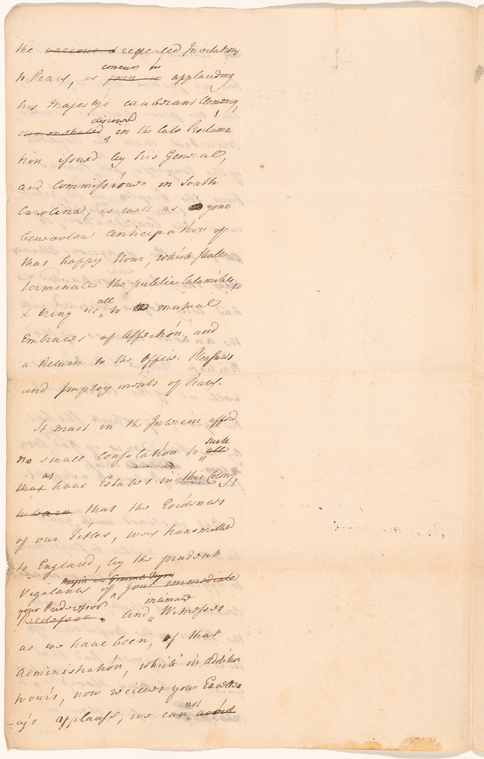 the ~~various~~ repeated Invitations
to Peace, we ~~join in~~ concur in applauding
his Majesty's exuberant Clemency,
~~demonstrated~~ discovered in the late Proclama
tion issued by his General,
and Commissioners in South
Carolina, as well as your
benevolent anticipation of
that happy Hour, which shall
terminate the public Calamities,
& bring us all to mutual
Embraces of Affection, and
a Return to the Offices
and Employments of Peace.
It must in the Interim afford
no small consolation to ~~all~~ such
~~that~~ as have Estates in this Colony,
that the Evidences
of our Titles, were transmitted
to England, by the prudent
Vigilance of ~~your immediate~~
your Predecessor, and intimate Witnesses
as we have been, of that
Administration, which in addition
to ours, now recieves your Excellen
-cy's applause, we can not ~~avoid~~